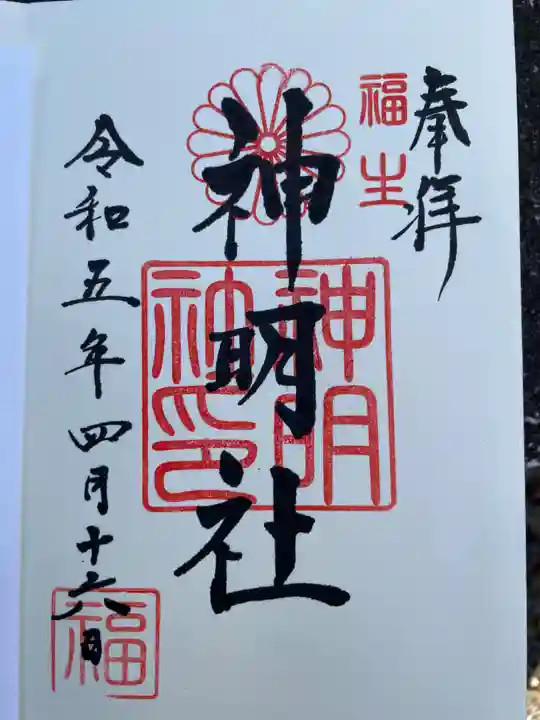 奉拝
福生
神明社
神明
社印
令和五年四月十六日
福